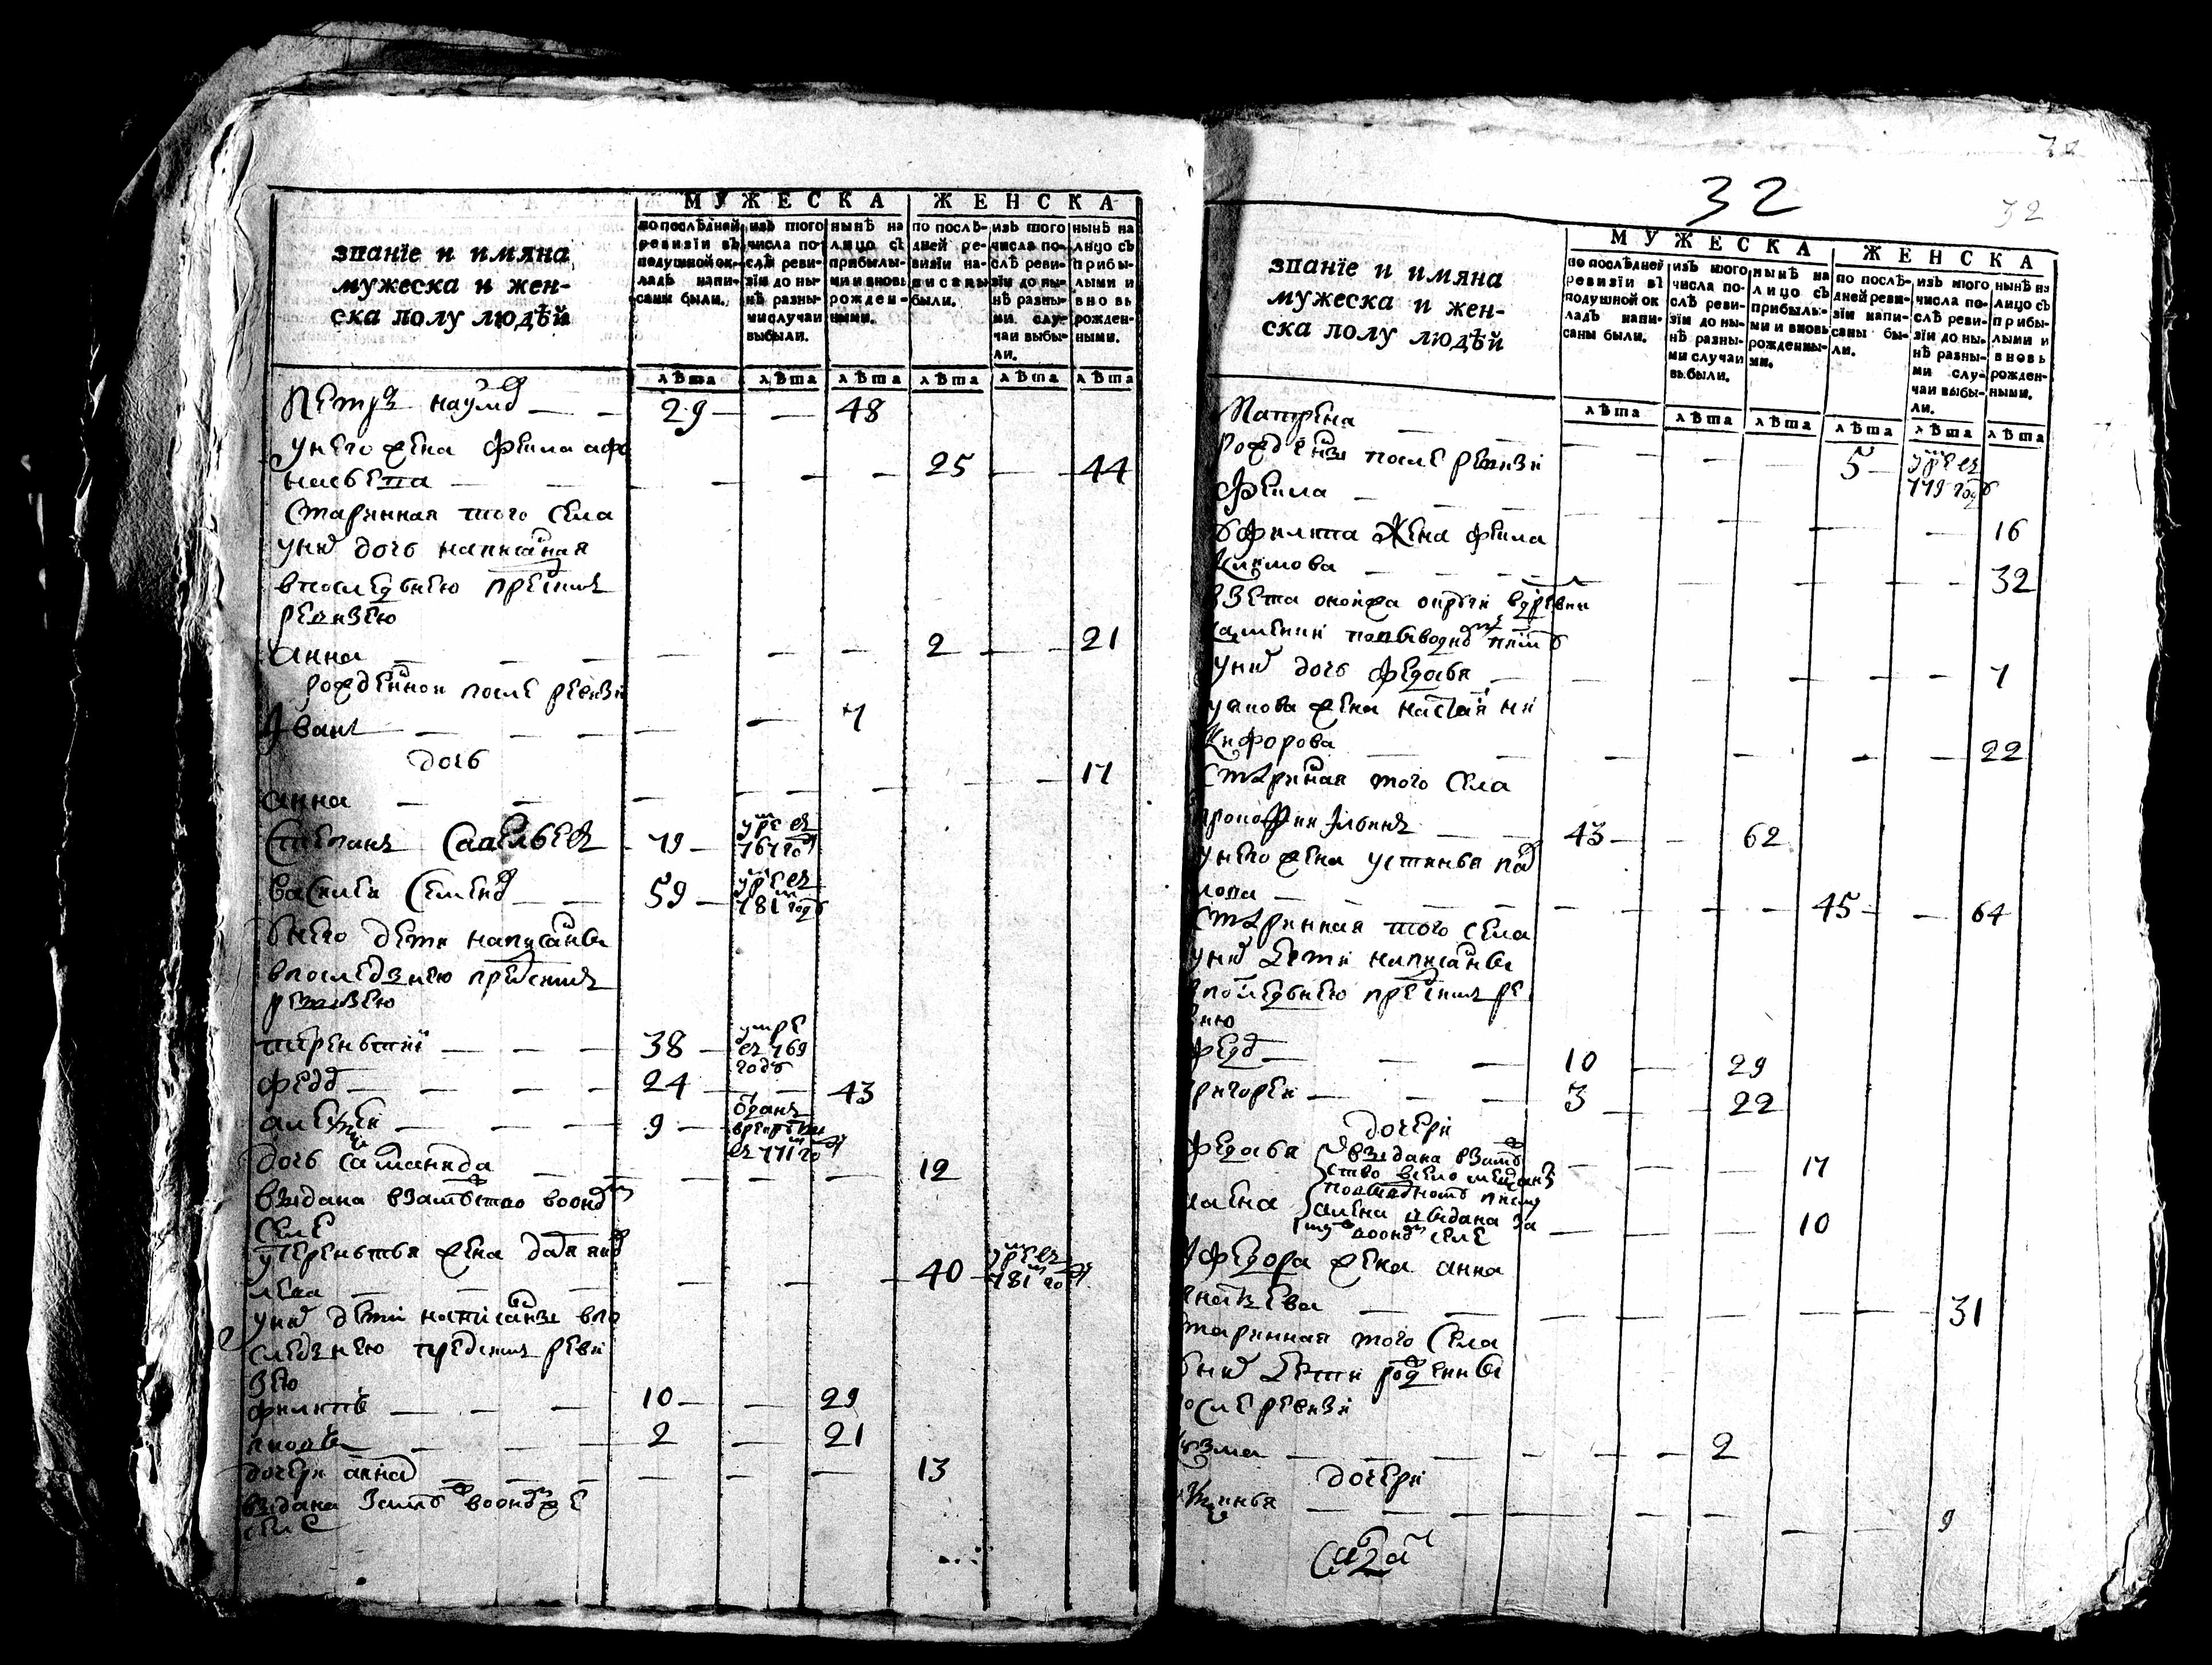 МУЖЕСКА ЖЕНСКА
званїе и имяна
мужеска и жен-
ска полу людѣй
по послѣдней
ревизїи въ
подушной ок-
ладъ напи-
саны были.
изъ того
числа по-
слѣ реви-
зїи до ны-
нѣ разны-
ми случаи
выбыли.
нынѣ на
лицо съ
прибылы-
ми и вновь
рожден-
ными.
по послѣ-
дней ре-
визїи на-
писаны
были.
изъ того
числа по-
слѣ реви-
зїи до ны-
нѣ разны-
ми слу-
чаи выбы-
ли.
нынѣ на
лицо съ
прибы-
лыми и
вновь
рожден-
ными.
лѣта лѣта лѣта лѣта лѣта лѣта
Петръ наумов 29 48
у него жена фекла афо
насьева 25 44
старинная того села
у них дочь написанная
в последнею пред сим
ревизею
анна 2 21
рожденной после ревизи
Иванъ 7
дочь
анна 17
Степанъ Савельев 79 умре в 767 году
василеи Семенов 59 умре в 781 году
у него дети написаны
в последнею пред сим
ревизею
терентии 38 умре
в 769
году
федор 24 43
алексеи 9 отдан
в рекруты
в 771 году
дочь 12
выдана в замужство в оном
селе
у терентья жена дарья
40 умре в 781 году
у них дети написаны в по
следнею пред сим реви
зею
филипъ 10 29
2 21
дочери анна 13
выдана замуж в оном же
селе
32
МУЖЕСКА ЖЕНСКА
званїе и имяна
мужеска и жен-
ска полу людѣй
по послѣдней
ревизїи въ
подушной ок
ладъ напи-
саны были.
изъ того
числа по-
слѣ реви-
зїи до ны-
нѣ разны-
ми случаи
выбыли.
нынѣ на
лицо съ
прибылы-
ми и вновь
рожденны-
ми.
по послѣ-
дней реви-
зїи напи-
саны бы-
ли.
изъ того
числа по-
слѣ реви-
зїи до ны-
нѣ разны-
ми слу-
чаи выбы-
ли.
нынѣ на
лицо съ
прибы-
лыми и
вновь
рожден-
ными.
лѣта лѣта лѣта лѣта лѣта лѣта
Матрена 5 умре в
779 году
рожденны после ревизи
Фекла 16
у филипа жена фекла
Климова 32
взета в деревни
у них дочь федосья 7
жена настасья ни
кифорова 22
старинная того села
прокофеи Ильинъ 43 62
у него жена устинья пав
лова 45 64
старинная того села
у них дети написаны
в последнею пред сим ре
зию
федор 10 29
григореи 3 22
дочери
федосья 17
алена 10
выдана в замуж
ство
алена выдана за
муж в оном селе
у федора жена анна
31
старинная того села
у них дети рожденны
после ревизи
козма 2
дочери
аксинья 9